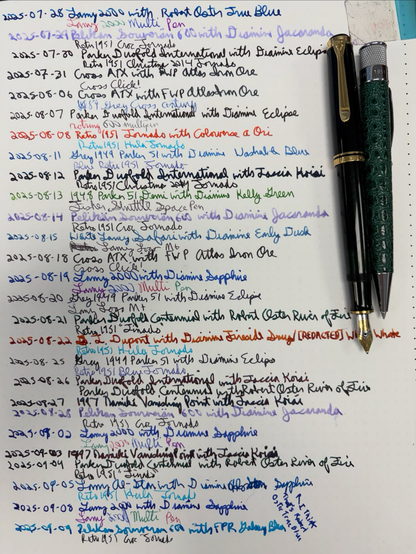 2025-07-28 Lamy 2000 with Robert Oster True Blue
Lamy 2000 Multi Pen
2025-07-29 Pelikan Souveran 600 with Diamine Jacaranda
Retro 1951 Croc Tornado
2025-07-30 Parker Duofold International with Diamine Eclipse
Retro 1951 Christmas 2014 Tornado
2025-07-31 Cross ATX with FWP Atlas Iron Ore
Cross Click!
2025-08-06 Cross ATX with FWP Atlas Iron Ore
Grey Cross Century
2025-08-07 Parker Duofold International with Diamine Eclipse
rotring 600 multipen
2025-08-08 Retro 1951 Tornado with Colorverse α Ori
Retro 1951 Hula Tornado
2025-08-11 Grey 1949 Parker 51 with Diamine Washable Blue
Blue Retro 1951 Tornado
2025-08-12 Parker Duofold International with Taccia Koiai
Retro 1951 Christmas Tornado
2025-08-13 1948 Parker 51 Demi with Diamine Kelly Green
Fisher Shuttle Space Pen
2025-08-14 Pelikan Souveran 600 with Diamine Jacaranda
Retro 1951 Croc Tornado
2025-08-15 White Lamy Safari with Diamine Early Dusk
Lamy M6
2025-08-18 Cross ATX with FWP Atlas Iron Ore
Cross Click!
2025-08-19 Lamy 2000 with Diamine Sapphire
Lamy 2000 Multi Pen
2025-08-20 Grey 1949 Parker 51 with Diamine Eclipse
Lamy
2025-08-21 Parker Duofold Centennial with Robert Oster River of Fire
Retro 1951 Tornado
2025-08-22 S. T. Dupont with Diamine Fireside Snug/[REDACTED]
Retro 1951 Hula Tornado
2025-08-25 Grey 1949 Parker 51 with Diamine Eclipse
Retro 1951 Blue Tornado
2025-08-26 Parker Duofold International with Taccia Koiai
Parker Duofold Centennial with Robert Oster River of Fire
2025-08-27 1997 Namiki Vanishing Point with Taccia Koiai
2025-08-28 Pelikan Souveran 600 with Diamine Jacaranda
Retro 1951 Croc Tornado
2025-09-02 Lamy 2000 with Diamine Sapphire
Lamy 2000 Multi Pen
2025-09-03 1997 Namiki Vanishing Point with Taccia Koiai
2025-09-04 Parker Duofold Centennial with Robert Oster River of Fire
Retro 1951 Tornado
2025-09-05 Lamy Al-Star with Diamine Sapphire
Retro 1951 Hula Tornado
2025-09-08 Lamy 2000 with Diamine Sapphire
Lamy 2000 Multi Pen
2025-09-09 Pelikan Souveran 600 with FPR Galaxy Blue
Retro 1951 Croc Tornado